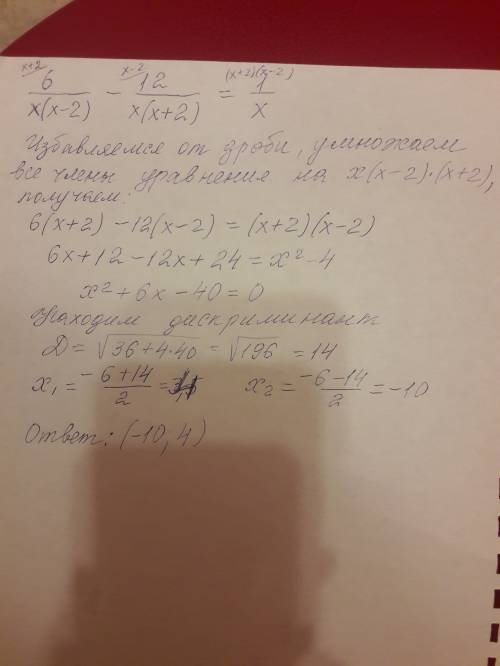 x+2 x-2 (x+2)(x-2)
6/x(x-2) - 12/x(x+2) = 1/x
Избавляемся от дроби, умножаем
все члены уравнения на x(x-2)·(x+2),
получаем:
6(x+2) -12(x-2) = (x+2)(x-2)
6x+12-12x+24=x²-4
x²+6x-40=0
Находим дискриминант
D=√36+4·40=√196=14
x₁=-6+14/2= x₂=-6-14/2=-10
Ответ: (-10; 4)